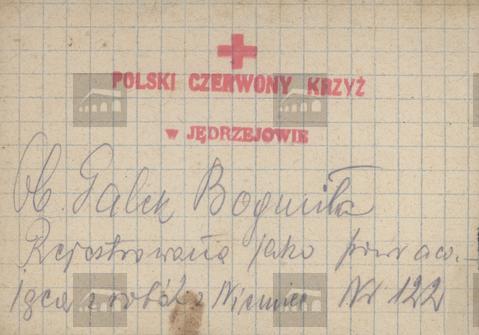 POLSKI CZERWONY KRZYŻ
w JĘDRZEJOWIE
Ob. Gałek Bogumiła
Rejestrowana jako powraca-
jąca z robót z Niemiec Nr 122